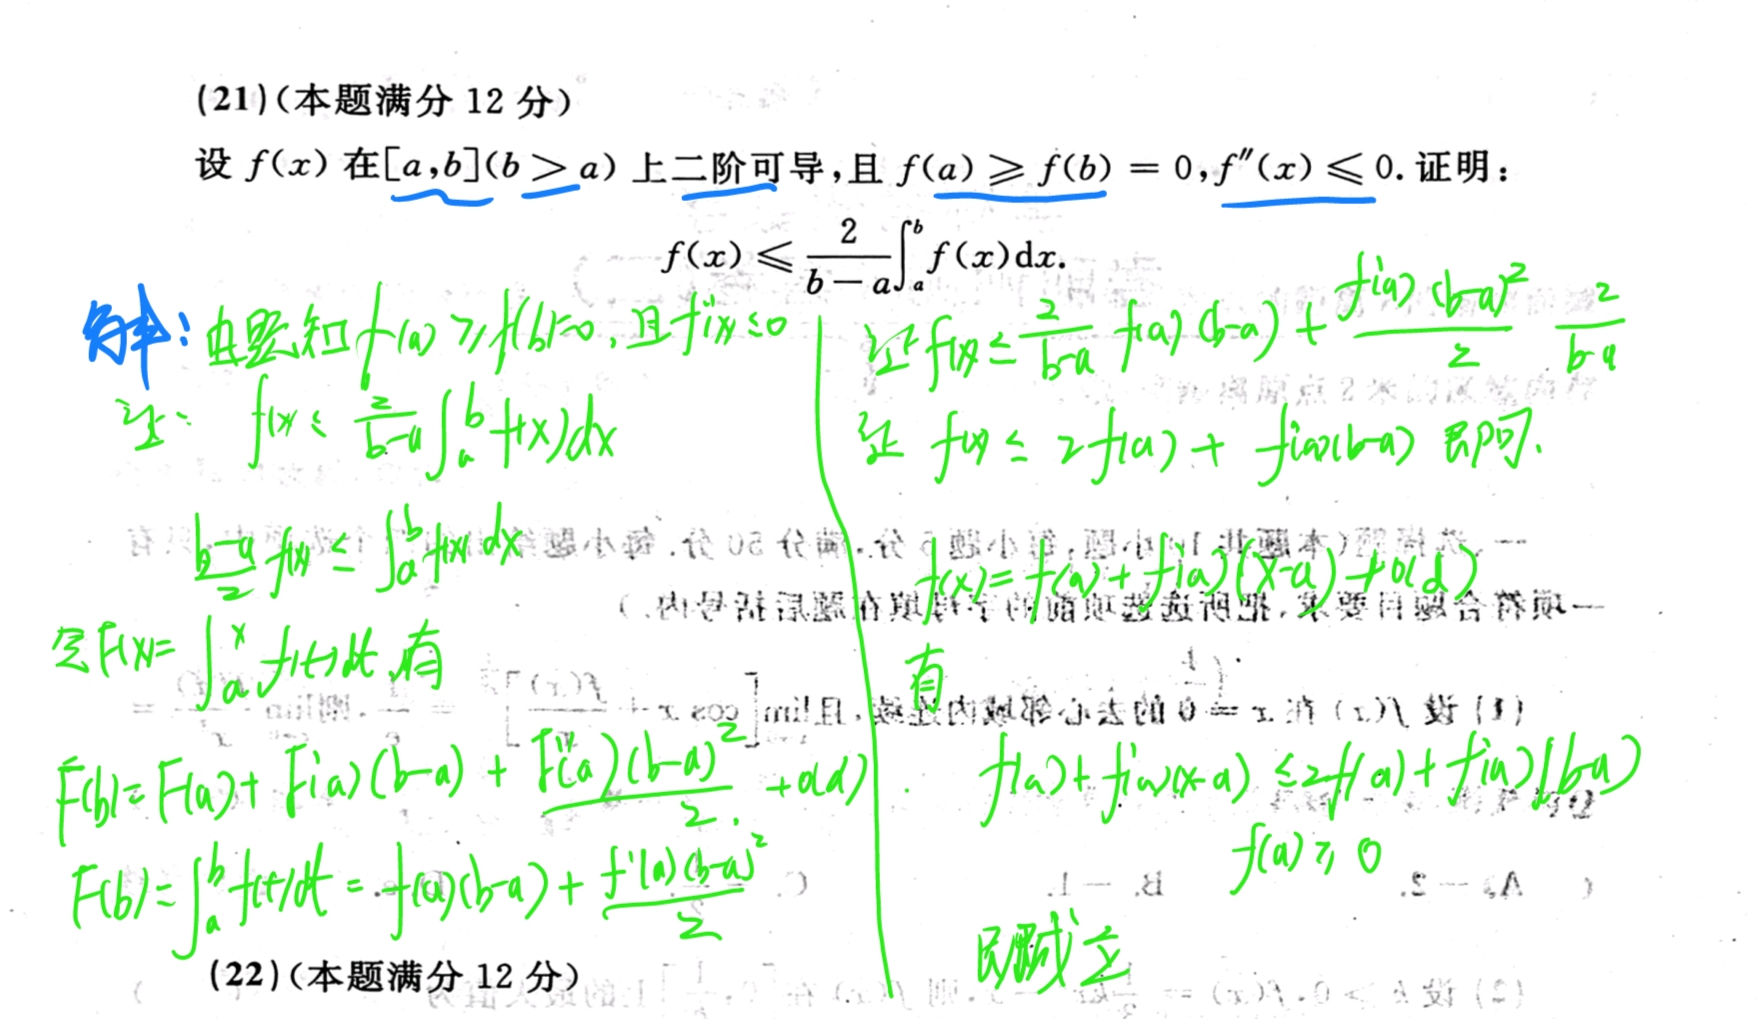 (21)(本题满分 12 分)
设 f(x) 在[a,b](b > a) 上二阶可导,且 f(a) ⩾ f(b) = 0, f″(x) ⩽ 0. 证明:
f(x) ⩽ 2/(b−a) ∫_a^b f(x)dx.
解: 由题知 f(a) ⩾ f(b)=0, 且 f″(x) ≤ 0
证: f(x) ≤ 2/(b-a) ∫_a^b f(x)dx
(b-a)/2 f(x) ≤ ∫_a^b f(x)dx
令F(x)= ∫_a^x f(t)dt, 有
F(b)= F(a)+ F'(a)(b-a) + F″(a)(b-a)²/2 + o(d)
F(b)= ∫_a^b f(t)dt = f(a)(b-a) + f'(a)(b-a)²/2
证 f(x) ≤ 2/(b-a) f(a)(b-a) + f'(a)(b-a)²/2 2/(b-a)
证 f(x) ≤ 2f(a) + f'(a)(b-a) 即可.
f(x)= f(a)+ f'(a)(x-a)+o(d)
有
f(a)+ f'(a)(x-a) ≤ 2f(a)+ f'(a)(b-a)
f(a) ⩾ 0
成立
(22)(本题满分 12 分)